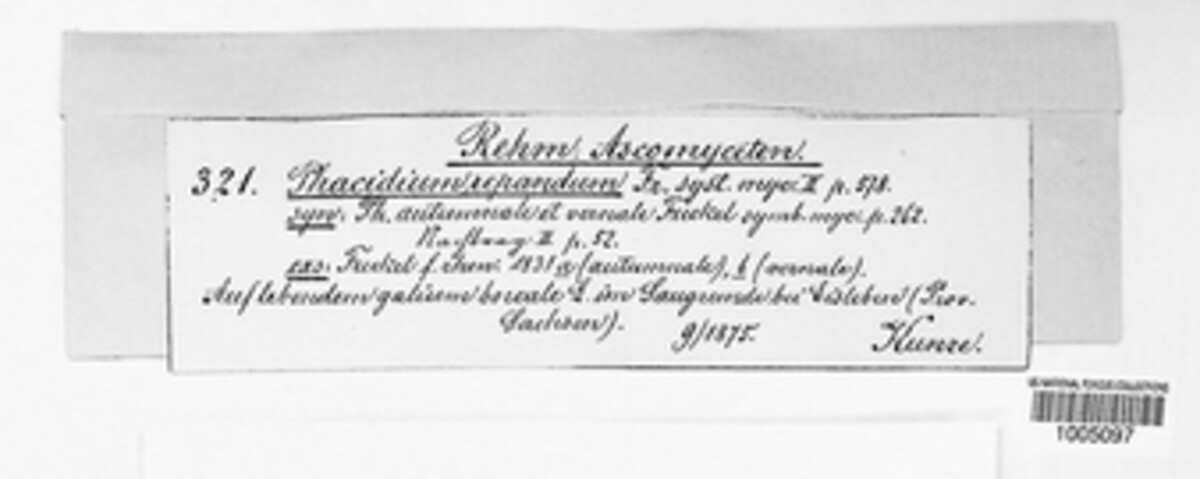 Rehm, Ascomyceten.
321. Phacidium repandum Fr. syst. myc. II p. 578.
syn. Ph. autumnale et vernale Fuckel symb. myc. p. 262.
Nachtrag II p. 52.
exs. Fuckel f. rhen. 1831 a (autumnale), b (vernale).
Auf lebendem galium boreale L. im Saugrunde bei Eisleben (Prov.
Sachsen). 9/1875. Kunze.
US NATIONAL FUNGUS COLLECTIONS
1005097